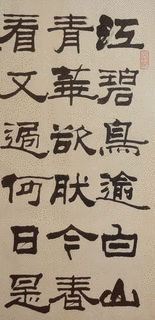 江碧鳥逾白山
青華欲肰今春
看又過何日是